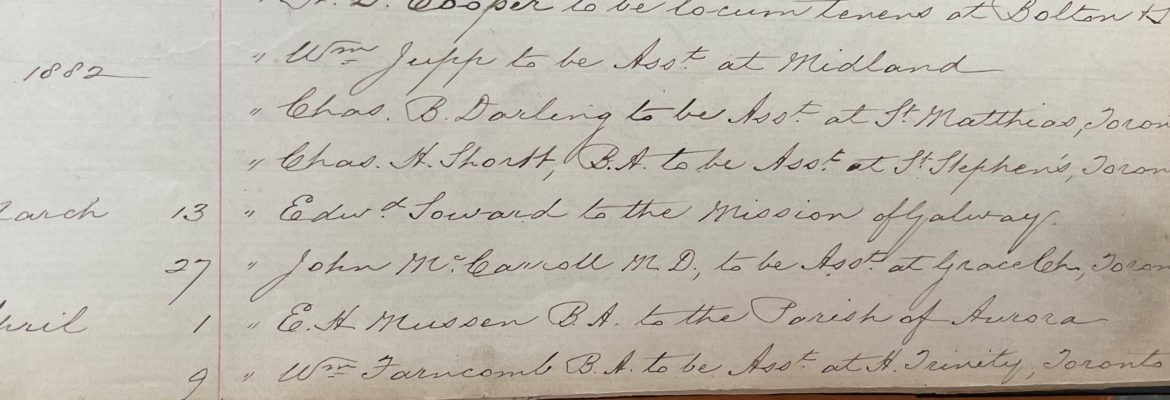 " D. Cooper to be locum tenens at Bolton &
1882 " Wm Jupp to be Asst. at Midland
" Chas. B. Darling to be Asst. at St. Matthias, Toron
" Chas. H. Shortt, B.A. to be Asst. at St. Stephen's, Toron
March 13 " Edwd. Soward to the Mission of Galway.
27 " John McCarroll M.D., to be Asst. at Grace Ch., Toron
April 1 " E. H. Mussen B.A. to the Parish of Aurora
9 " Wm Farncomb B.A. to be Asst. at H. Trinity, Toronto